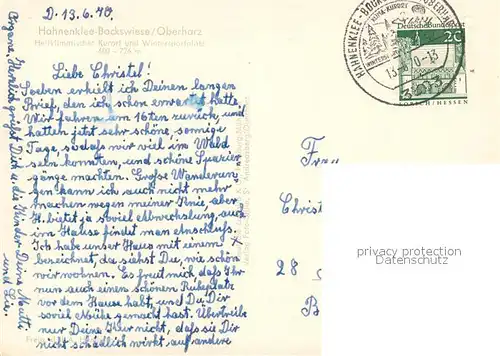 D. 13.6.70.
Hahnenklee-Bockswiese/Oberharz
Heilklimatischer Kurort und Wintersportplatz
600 – 726 m
Liebe Christel!
Soeben erhielt ich Deinen langen
Brief, den ich schon erwartet hatte.
Wir fahren am 16ten zurück, und
hatten jetzt sehr schöne, sonnige
Tage, sodaß wir viel im Wald
sein konnten, und schöne Spazier
gänge machten. Große Wanderun
gen kann ich auch nicht mehr
machen wegen meiner Knie, aber
H. bietet ja soviel Abwechslung, auch
im Hause findet man Anschluß.
Ich habe unser Haus mit einem x
bezeichnet, da siehst Du, wie schön
wir wohnen. Es freut mich, daß Ihr
nun auch einen schönen Ruheplatz
vor dem Hause habt, und Du Dir
soviel Mühe gemacht hast. Übertreibe
nur Deine Kur nicht, daß sie Dir
nicht schädlich wirkt auf andere
Organe. Herzlich grüßt Dich u. die Kinder Deine Mutti
und Lie.
HAHNENKLEE-BOCKSWIESE
OBERHARZ
HEILKL. KURORT
WINTERS
13.
70-13
3393
Deutsche Bundespost
20
LORSCH/HESSEN
Fr
Christ
28
B
privacy protection
Datenschutz